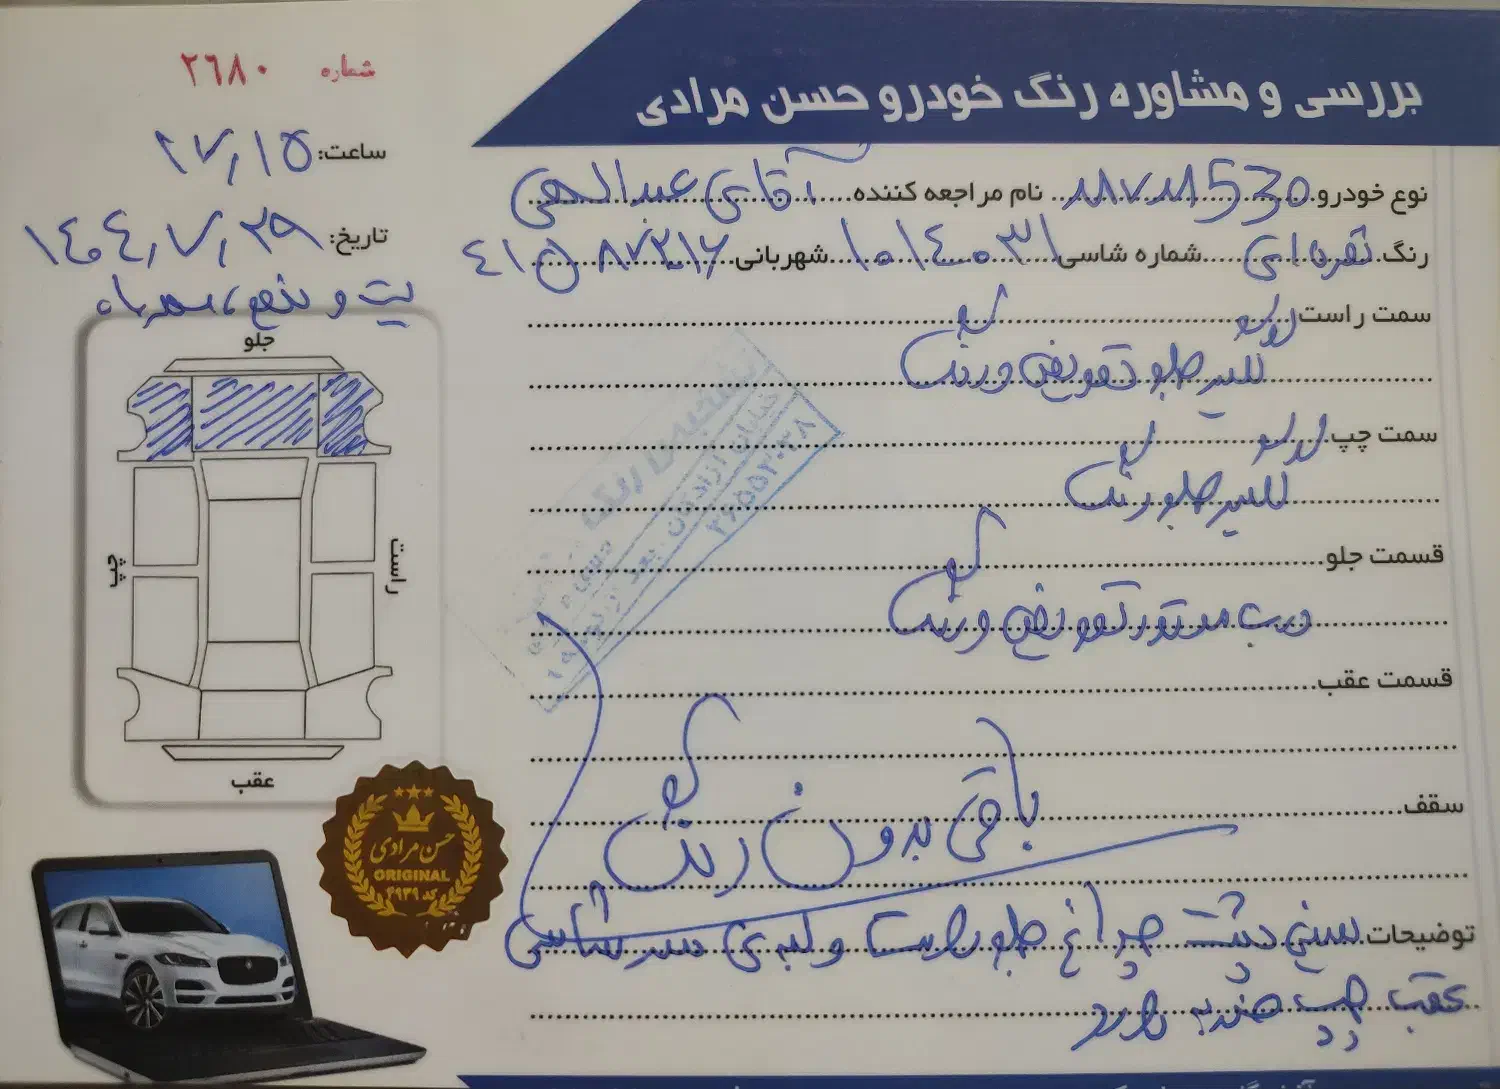 بررسی و مشاوره رنگ خودرو حسن مرادی
شماره ۲٦۸۰
ساعت: ۱۷,۱۵
تاریخ: ۱٤۰٤,۷,۲۹
نوع خودرو 530 نام مراجعه کننده آقای
رنگ نقره‌ای شماره شاسی ۱۰۱٤۰۳۱ شهربانی
سمت راست
گلگیر جلو تعویض و رنگ
سمت چپ
گلگیر جلو رنگ
قسمت جلو
درب موتور تعویض و رنگ
قسمت عقب
سقف
باقی بدون رنگ
توضیحات سینی پشت چراغ جلو راست و لبه‌ی سر شاسی
عقب چپ ضربه دارد
جلو
راست
چپ
عقب
حسن مرادی
ORIGINAL
کد ۴۹۳۹
تشخیص رنگ